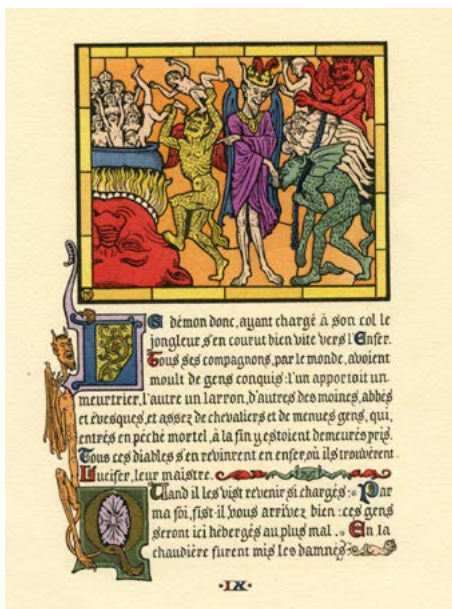 Le démon donc, ayant chargé à son col le
jongleur, s'en courut bien vite vers l'Enfer.
Tous ses compagnons, par le monde, avoient
moult de gens conquis: l'un apportoit un
meurtrier, l'autre un larron, d'autres des moines, abbés
et évesques, et assez de chevaliers et de menues gens, qui,
entrés en péché mortel, à la fin y estoient demeurés pris.
Tous ces diables s'en revinrent en enfer, où ils trouvèrent
Lucifer, leur maistre.
Quand il les vist revenir si chargés: Par
ma foi, fist-il vous arrivez bien: ces gens
seront ici hébergés au plus mal. En la
chaudière furent mis les damnés
·IX·